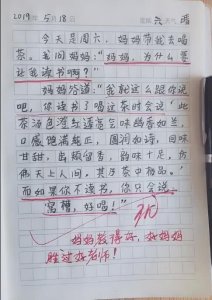 2019年5月18日 星期六 天气晴
今天是周六，妈妈带我去喝
茶。我问妈妈："妈妈，为什么要
让我读书啊？"
妈妈答道："我就这么跟你说
吧，你读书了喝过茶时会说'此
茶汤色澄红透亮气味幽香如兰，
口感饱满纯正，圆润如诗，回味
甘甜，齿颊留香，韵味十足，我
偶天上人间，其乃茶中极品。'
而如果你不读书，你只会说
'窝槽，好喝！'"
妈妈教得好，好妈妈
胜过好老师！